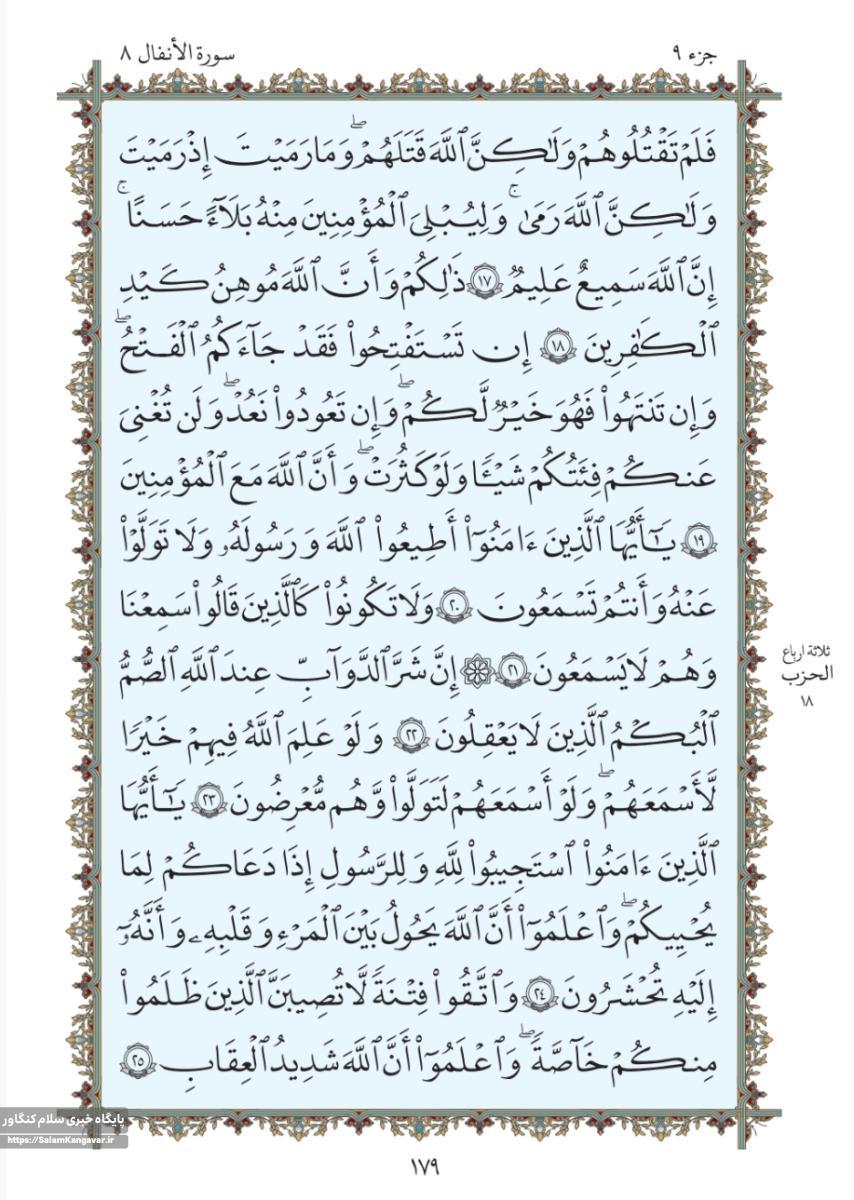 جزء ٩
سورة الأنفال ٨
فَلَمْ تَقْتُلُوهُمْ وَلَٰكِنَّ ٱللَّهَ قَتَلَهُمْ ۖ وَمَا رَمَيْتَ إِذْ رَمَيْتَ
وَلَٰكِنَّ ٱللَّهَ رَمَىٰ ۚ وَلِيُبْلِىَ ٱلْمُؤْمِنِينَ مِنْهُ بَلَآءً حَسَنًا ۚ
إِنَّ ٱللَّهَ سَمِيعٌ عَلِيمٌ ١٧ ذَٰلِكُمْ وَأَنَّ ٱللَّهَ مُوهِنُ كَيْدِ
ٱلْكَٰفِرِينَ ١٨ إِن تَسْتَفْتِحُوا۟ فَقَدْ جَآءَكُمُ ٱلْفَتْحُ ۖ
وَإِن تَنتَهُوا۟ فَهُوَ خَيْرٌ لَّكُمْ ۖ وَإِن تَعُودُوا۟ نَعُدْ ۖ وَلَن تُغْنِىَ
عَنكُمْ فِئَتُكُمْ شَيْـًٔا وَلَوْ كَثُرَتْ ۖ وَأَنَّ ٱللَّهَ مَعَ ٱلْمُؤْمِنِينَ
١٩ يَٰٓأَيُّهَا ٱلَّذِينَ ءَامَنُوٓا۟ أَطِيعُوا۟ ٱللَّهَ وَرَسُولَهُۥ وَلَا تَوَلَّوْا۟
عَنْهُ وَأَنتُمْ تَسْمَعُونَ ٢٠ وَلَا تَكُونُوا۟ كَٱلَّذِينَ قَالُوا۟ سَمِعْنَا
وَهُمْ لَا يَسْمَعُونَ ٢١ ۞ إِنَّ شَرَّ ٱلدَّوَآبِّ عِندَ ٱللَّهِ ٱلصُّمُّ
ٱلْبُكْمُ ٱلَّذِينَ لَا يَعْقِلُونَ ٢٢ وَلَوْ عَلِمَ ٱللَّهُ فِيهِمْ خَيْرًا
لَّأَسْمَعَهُمْ ۖ وَلَوْ أَسْمَعَهُمْ لَتَوَلَّوا۟ وَّهُم مُّعْرِضُونَ ٢٣ يَٰٓأَيُّهَا
ٱلَّذِينَ ءَامَنُوا۟ ٱسْتَجِيبُوا۟ لِلَّهِ وَلِلرَّسُولِ إِذَا دَعَاكُمْ لِمَا
يُحْيِيكُمْ ۖ وَٱعْلَمُوٓا۟ أَنَّ ٱللَّهَ يَحُولُ بَيْنَ ٱلْمَرْءِ وَقَلْبِهِۦ وَأَنَّهُۥٓ
إِلَيْهِ تُحْشَرُونَ ٢٤ وَٱتَّقُوا۟ فِتْنَةً لَّا تُصِيبَنَّ ٱلَّذِينَ ظَلَمُوا۟
مِنكُمْ خَآصَّةً ۖ وَٱعْلَمُوٓا۟ أَنَّ ٱللَّهَ شَدِيدُ ٱلْعِقَابِ ٢٥
ثلاثة ارباع
الحزب
١٨
پایگاه خبری سلام کنگاور
https://SalamKangavar.ir
١٧٩